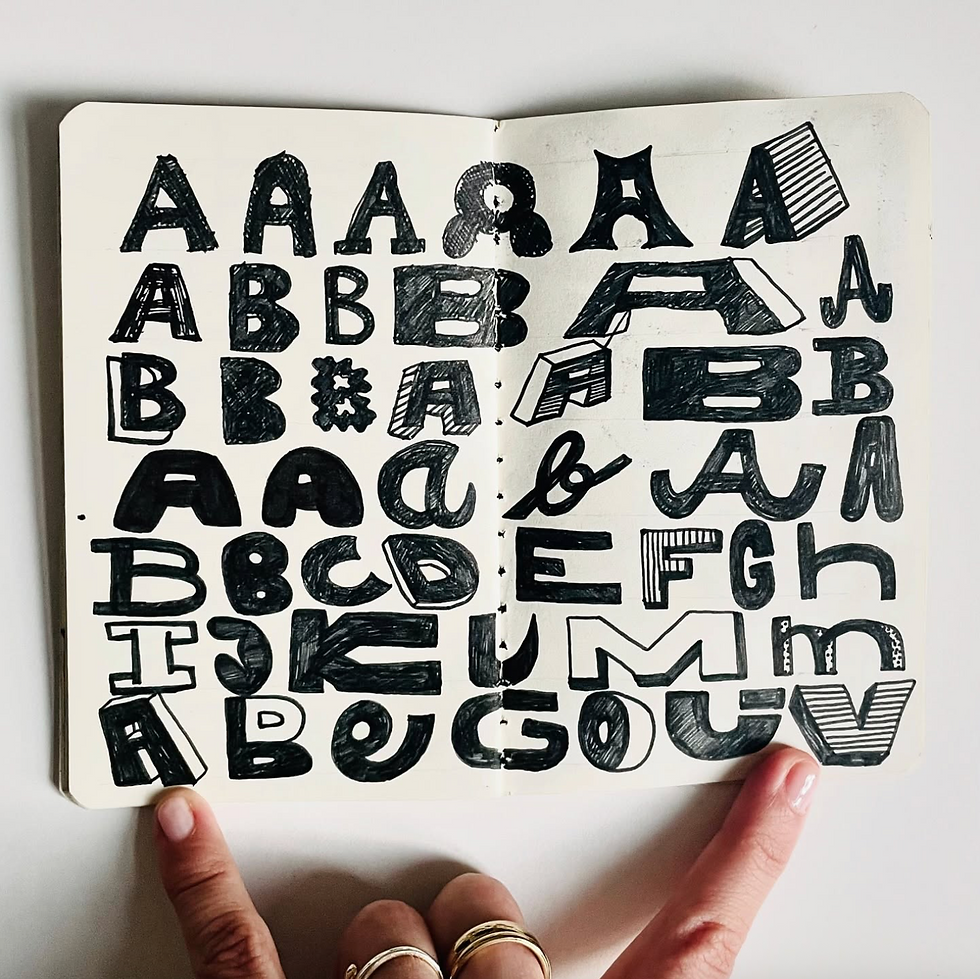 A A A A A A
A B B B A A
B B B A A B B
A A a b A A
B B C D E F G h
I J K L M m
A B e G O U V